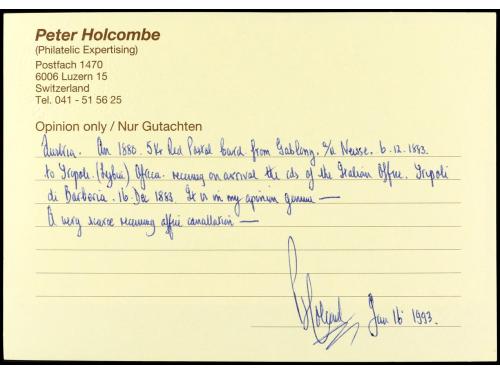 Peter Holcombe
(Philatelic Expertising)
Postfach 1470
6006 Luzern 15
Switzerland
Tel. 041 - 51 56 25
Opinion only / Nur Gutachten
Austria. An 1880. 5Kr Red Postal Card from Gablonz a/d Neisse. 6.12.1883.
to Tripoli. (Lybia) Africa. receiving on arrival the cds of the Italian Office. Tripoli
di Barberia. 16 Dec 1883. It is in my opinion genuine —
A very scarce receiving office cancellation —
Jan 16 1993.